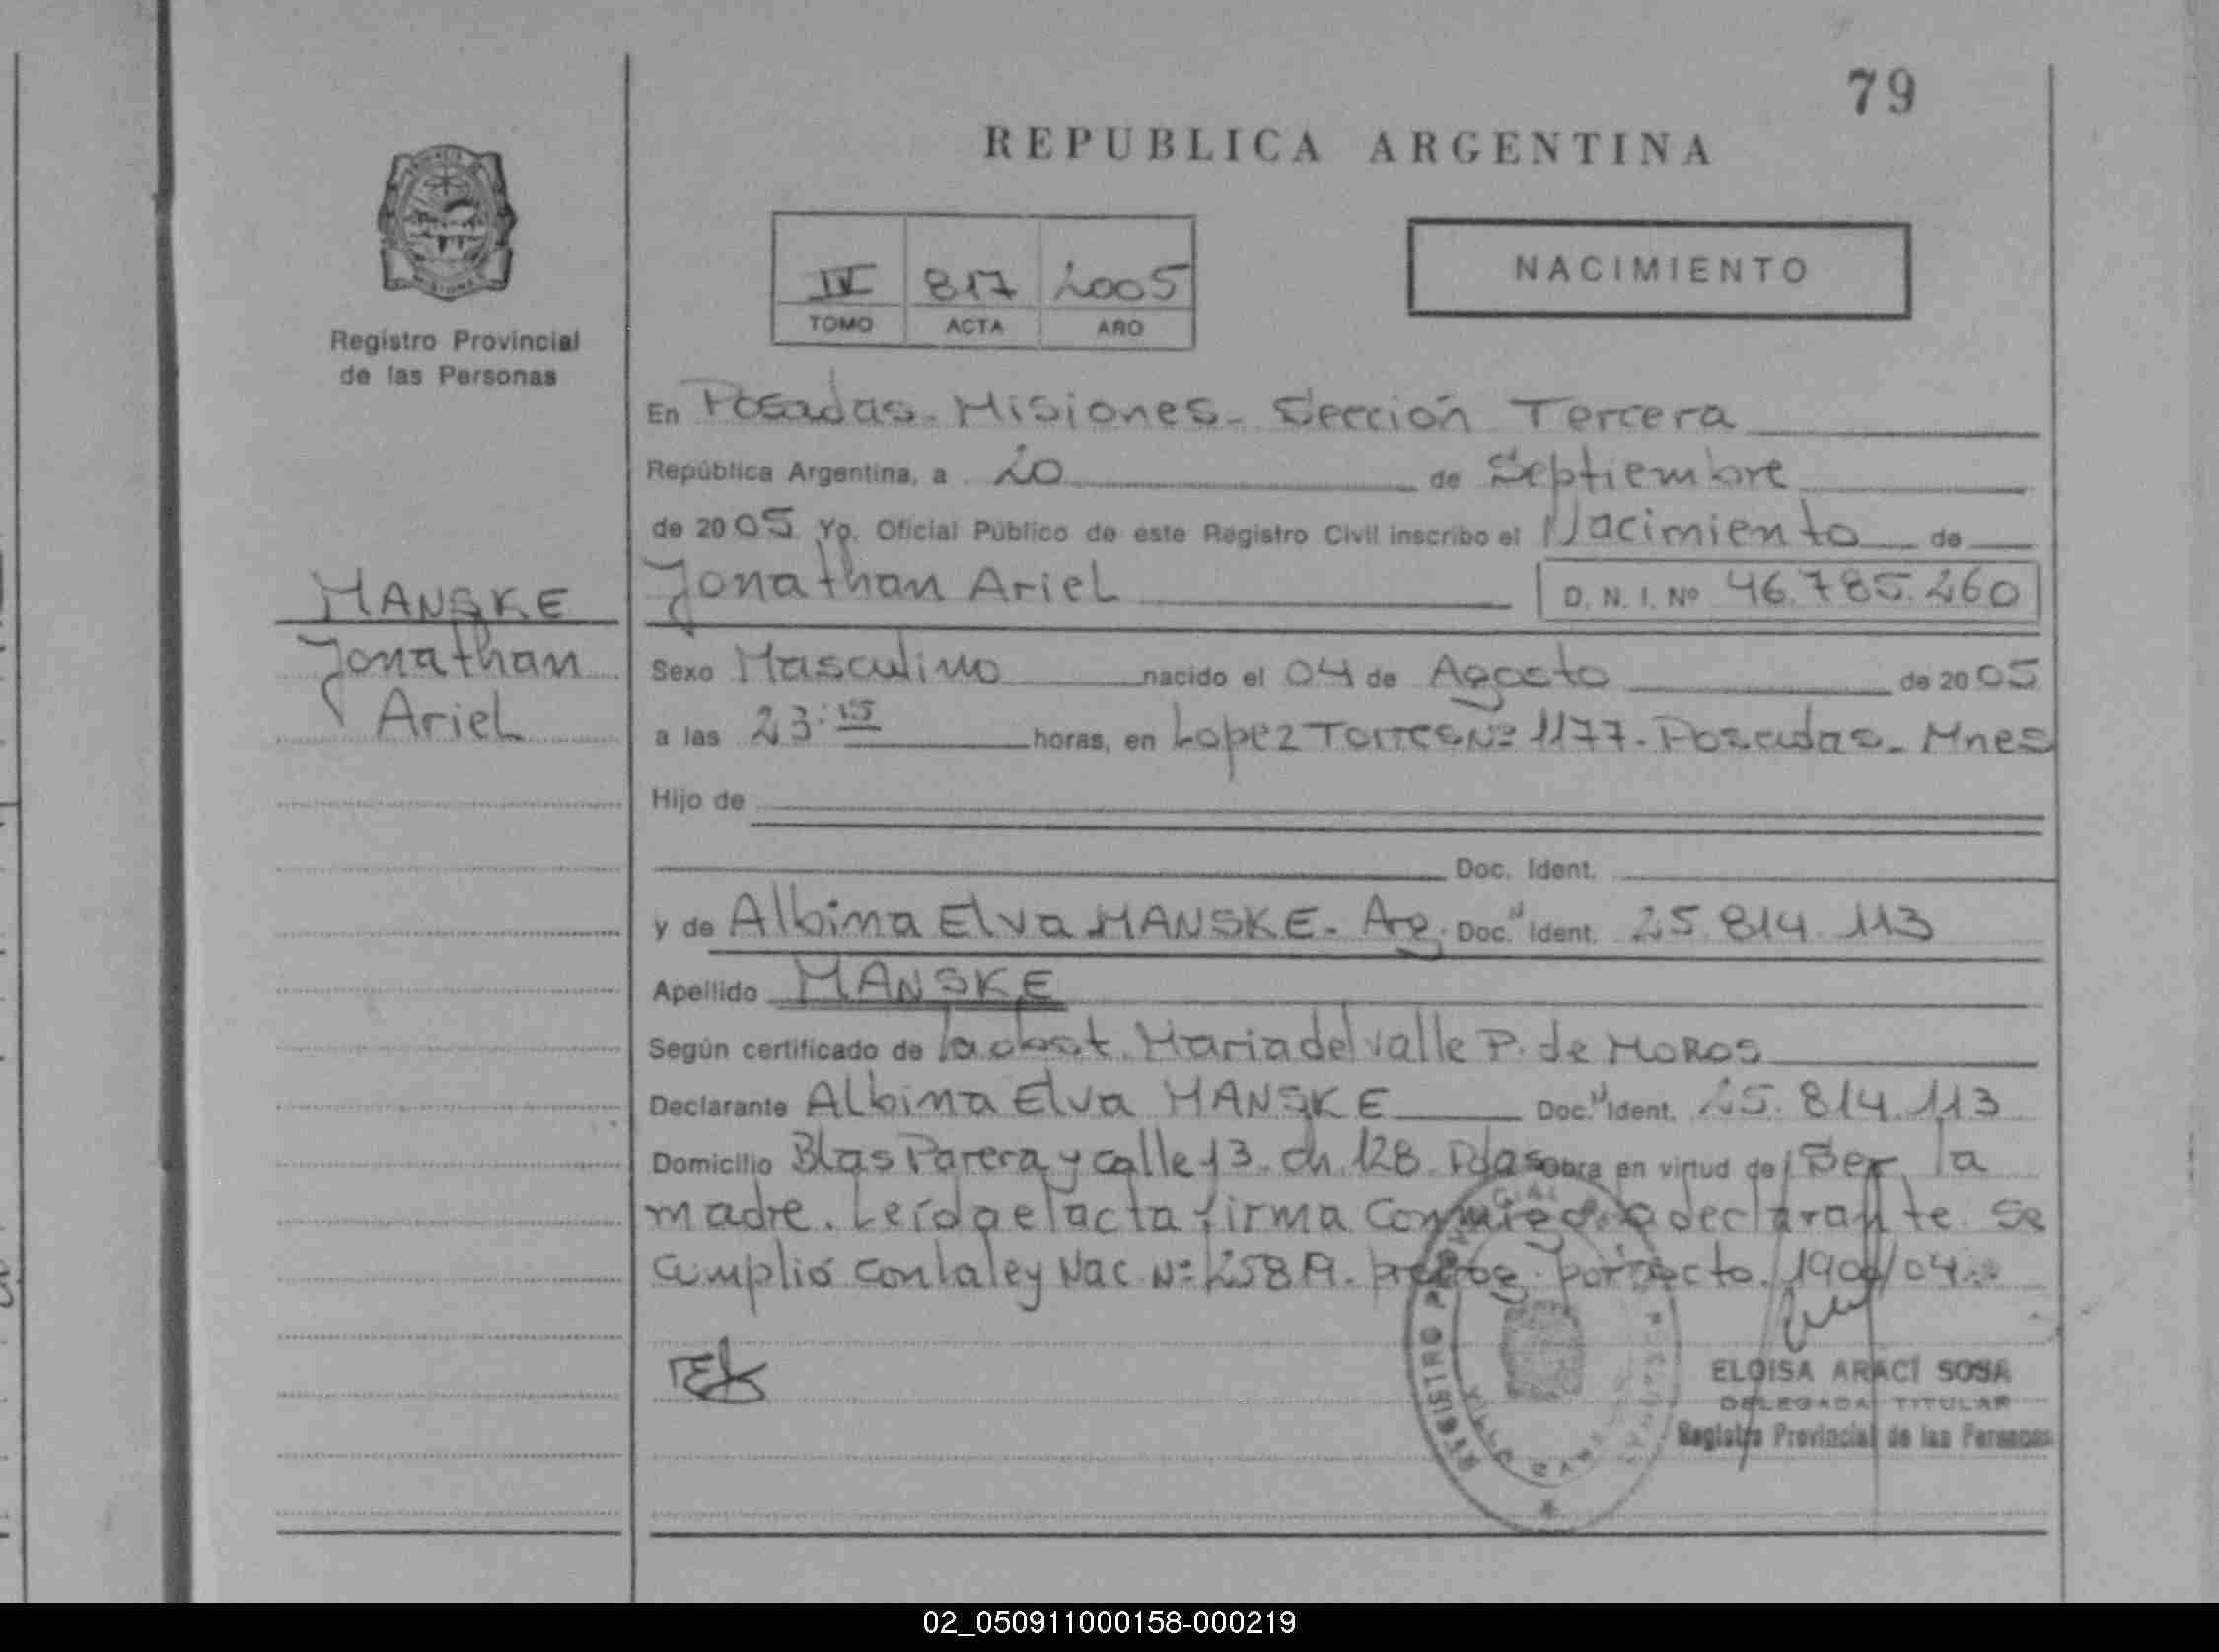 79
REPUBLICA ARGENTINA
IV 817 2005
TOMO ACTA AÑO
NACIMIENTO
Registro Provincial
de las Personas
MANSKE
Jonathan
Ariel
En Posadas - Misiones - Sección Tercera
República Argentina, a 20 de Septiembre
de 2005 Yo, Oficial Público de este Registro Civil inscribo el Nacimiento de
Jonathan Ariel D. N. I. Nº 46.785.260
Sexo Masculino nacido el 04 de Agosto de 2005
a las 23:15 horas, en Lopez Torres Nº 1177 - Posadas - Mnes
Hijo de
Doc. Ident.
y de Albina Elva MANSKE - Arg. Doc. N Ident. 25.814.113
Apellido MANSKE
Según certificado de la obst. Maria del Valle P. de MOROS
Declarante Albina Elva MANSKE Doc. N Ident. 25.814.113
Domicilio Blas Parera y calle 13 - ch. 128 - Pdas obra en virtud de Ser la
madre. Leída el acta firma conmigo la declarante. Se
cumplió con la ley Nac. Nº por Dcto. /04
REGISTRO PROVINCIAL
ELOISA ARACÍ SOSA
DELEGADA TITULAR
Registro Provincial de las Personas
02_050911000158-000219